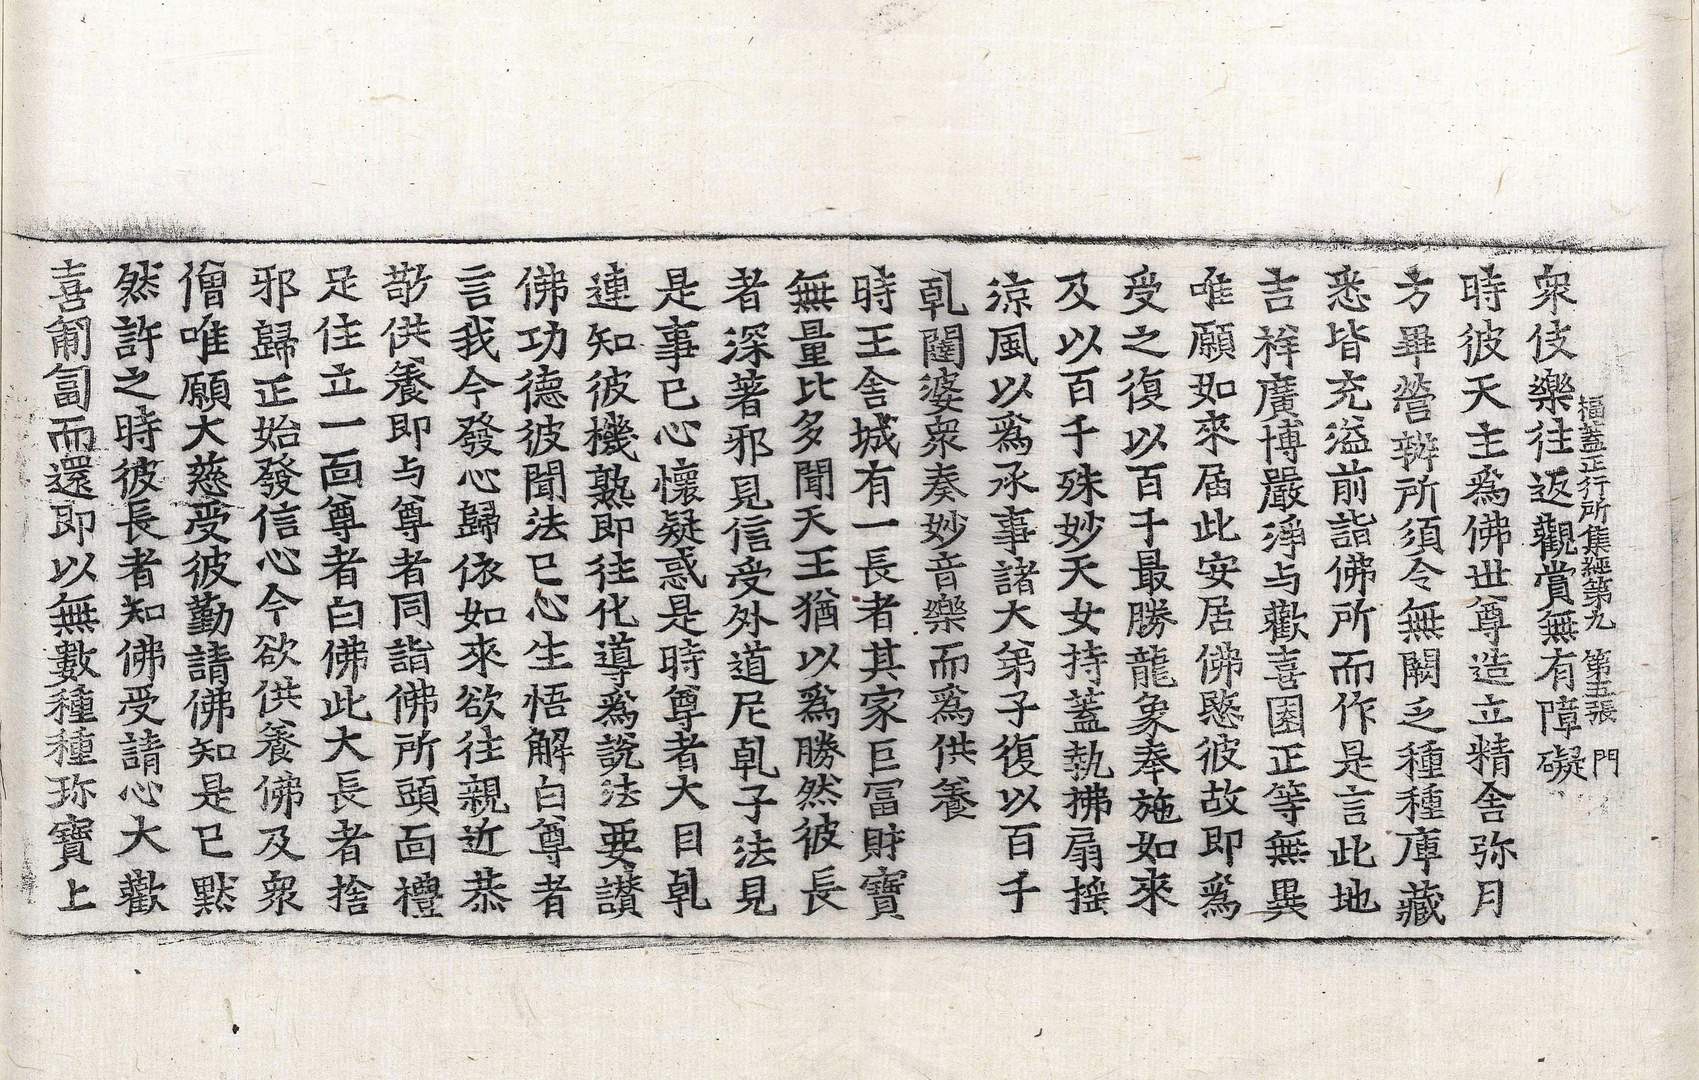 福蓋正行所集經第九 第五張 門
衆伎樂往返觀賞無有障礙
時彼天主爲佛世尊造立精舍弥月
方畢營辦所須令無闕乏種種庫藏
悉皆充溢前詣佛所而作是言此地
吉祥廣博嚴淨与歡喜園正等無異
唯願如來屆此安居佛愍彼故即爲
受之復以百千最勝龍象奉施如來
及以百千殊妙天女持蓋執拂扇揺
涼風以爲承事諸大弟子復以百千
乹闥婆衆奏妙音樂而爲供養
時王舍城有一長者其家巨富財寶
無量比多聞天王猶以爲勝然彼長
者深著邪見信受外道尼乹子法見
是事已心懷疑惑是時尊者大目乹
連知彼機熟即往化導爲説法要讃
佛功德彼聞法已心生悟解白尊者
言我今發心歸依如來欲往親近恭
敬供養即与尊者同詣佛所頭面禮
足住立一面尊者白佛此大長者捨
邪歸正始發信心今欲供養佛及衆
僧唯願大慈受彼勤請佛知是已默
然許之時彼長者知佛受請心大歡
喜匍匐而還即以無數種種珎寶上